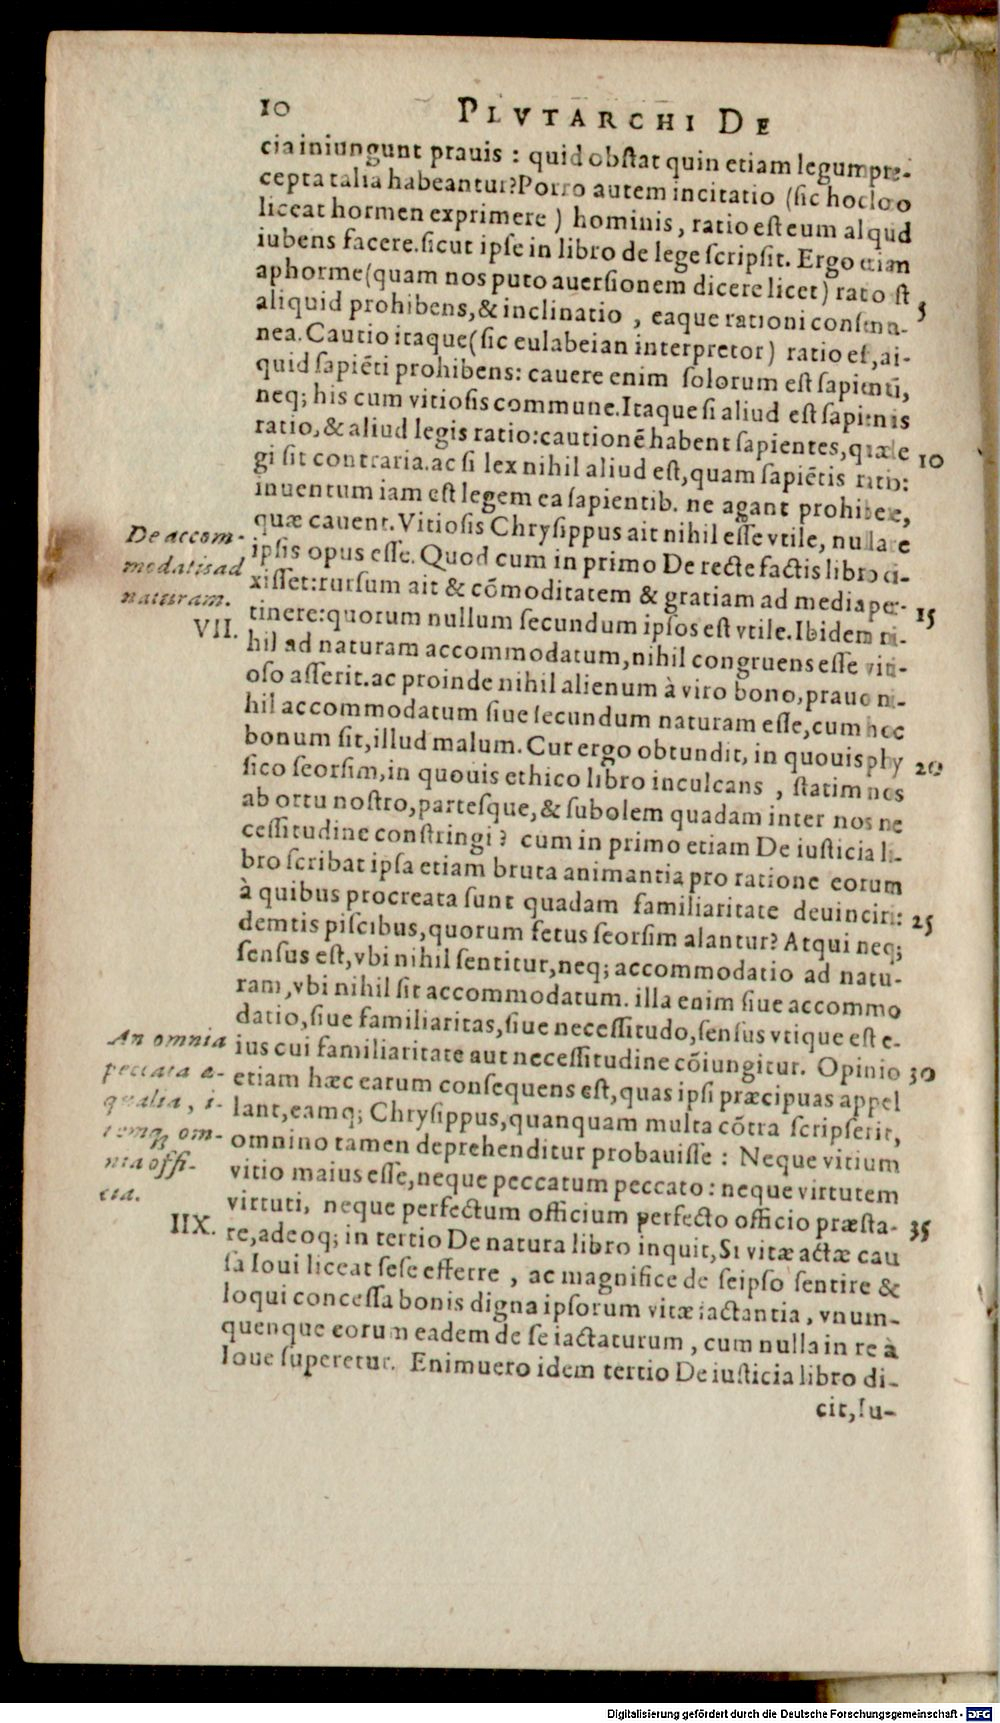 10 PLVTARCHI DE
cia iniungunt prauis : quid obstat quin etiam legum pre-
cepta talia habeantur? Porro autem incitatio (sic hoc loco
liceat hormen exprimere) hominis, ratio est eum aliqud
iubens facere. sicut ipse in libro de lege scripsit. Ergo etiam
aphorme (quam nos puto auersionem dicere licet) ratio st 5
aliquid prohibens, & inclinatio , eaque rationi
nea. Cautio itaque (sic eulabeian interpretor) ratio est, ai-
quid sapiēti prohibens: cauere enim solorum est sapientū,
neq; his cum vitiosis commune. Itaque si aliud est sapientis
ratio, & aliud legis ratio: cautionē habent sapientes, quæ le 10
gi sit contraria. ac si lex nihil aliud est, quam sapiētis ratio:
inuentum iam est legem ea sapientib. ne agant prohibere,
quæ cauent. Vitiosis Chrysippus ait nihil esse vtile, nulla re
De accom-
modatis ad
naturam.
VII.
ipsis opus esse. Quod cum in primo De recte factis libro di-
xisset: rursum ait & cōmoditatem & gratiam ad media per- 15
tinere: quorum nullum secundum ipsos est vtile. Ibidem ni-
hil ad naturam accommodatum, nihil congruens esse viti-
oso asserit. ac proinde nihil alienum à viro bono, prauo ni-
hil accommodatum siue secundum naturam esse, cum hoc
bonum sit, illud malum. Cur ergo obtundit, in quouis phy 20
sico seorsim, in quouis ethico libro inculcans , statim nos
ab ortu nostro, partesque, & subolem quadam inter nos ne
cessitudine constringi? cum in primo etiam De iusticia li-
bro scribat ipsa etiam bruta animantia pro ratione eorum
à quibus procreata sunt quadam familiaritate deuinciri: 25
demtis piscibus, quorum fetus seorsim alantur? Atqui neq;
sensus est, vbi nihil sentitur, neq; accommodatio ad natu-
ram, vbi nihil sit accommodatum. illa enim siue accommo
datio, siue familiaritas, siue necessitudo, sensus vtique est e-
An omnia
peccata æ-
qualia, i-
temq; om-
nia offi-
cia.
IIX.
ius cui familiaritate aut necessitudine cōiungitur. Opinio 30
etiam hæc earum consequens est, quas ipsi præcipuas appel
lant, eamq; Chrysippus, quanquam multa cōtra scripserit,
omnino tamen deprehenditur probauisse : Neque vitium
vitio maius esse, neque peccatum peccato: neque virtutem
virtuti, neque perfectum officium perfecto officio præsta- 35
re, adeoq; in tertio De natura libro inquit, Si vitæ actæ cau
sa Ioui liceat sese efferre , ac magnifice de seipso sentire &
loqui concessa bonis digna ipsorum vitæ iactantia, vnum-
quenque eorum eadem de se iactaturum , cum nulla in re à
Ioue superetur. Enimuero idem tertio De iusticia libro di-
cit, su-
Digitalisierung gefördert durch die Deutsche Forschungsgemeinschaft - DFG